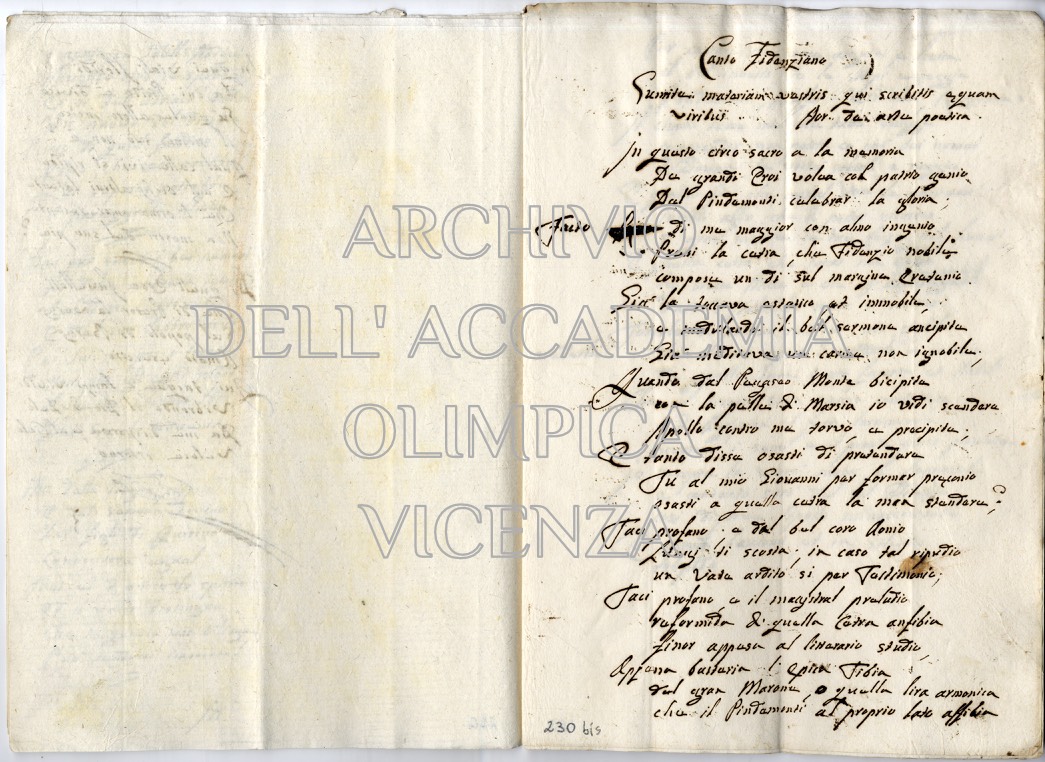 Canto Fidenziano
Sumite materiam vestris qui scribitis equam
viribus Hor. de arte poetica.
In questo circo sacro a la memoria
De grandi Eroi volea col patrio genio
Del Pindemonti celebrar la gloria;
Facto di me maggior con almo ingenio
Presi la cetra, che Fidenzio nobile
compose un di sul margine Eretenio
Gia la teneva estatico et immobile,
e modulando il bel sermone ancipite
Gia meditava un carme non ignobile;
Quando dal Pegaseo Monte bicipite
con la pelle di Marsia io vidi scendere
Apollo contro me torvo, e precipite;
E tanto disse osasti di pretendere
Tu al mio Giovanni per formar preconio
osasti a quella cetra la man stendere?
Taci profano e dal bel coro Aonio
Lungi ti scosta; in caso tal ripudio
un Vate ardito si per Testimonio;
Taci profano, e il magistral preludio
reformida di quella Cetra anfibia
finor appesa al litterario studio,
Appena basteria l'epica Tibia
del gran Marone, o quella lira armonica
che il Pindemonti al proprio lato affibia
230 bis
ARCHIVIO
DELL'ACCADEMIA
OLIMPICA
VICENZA